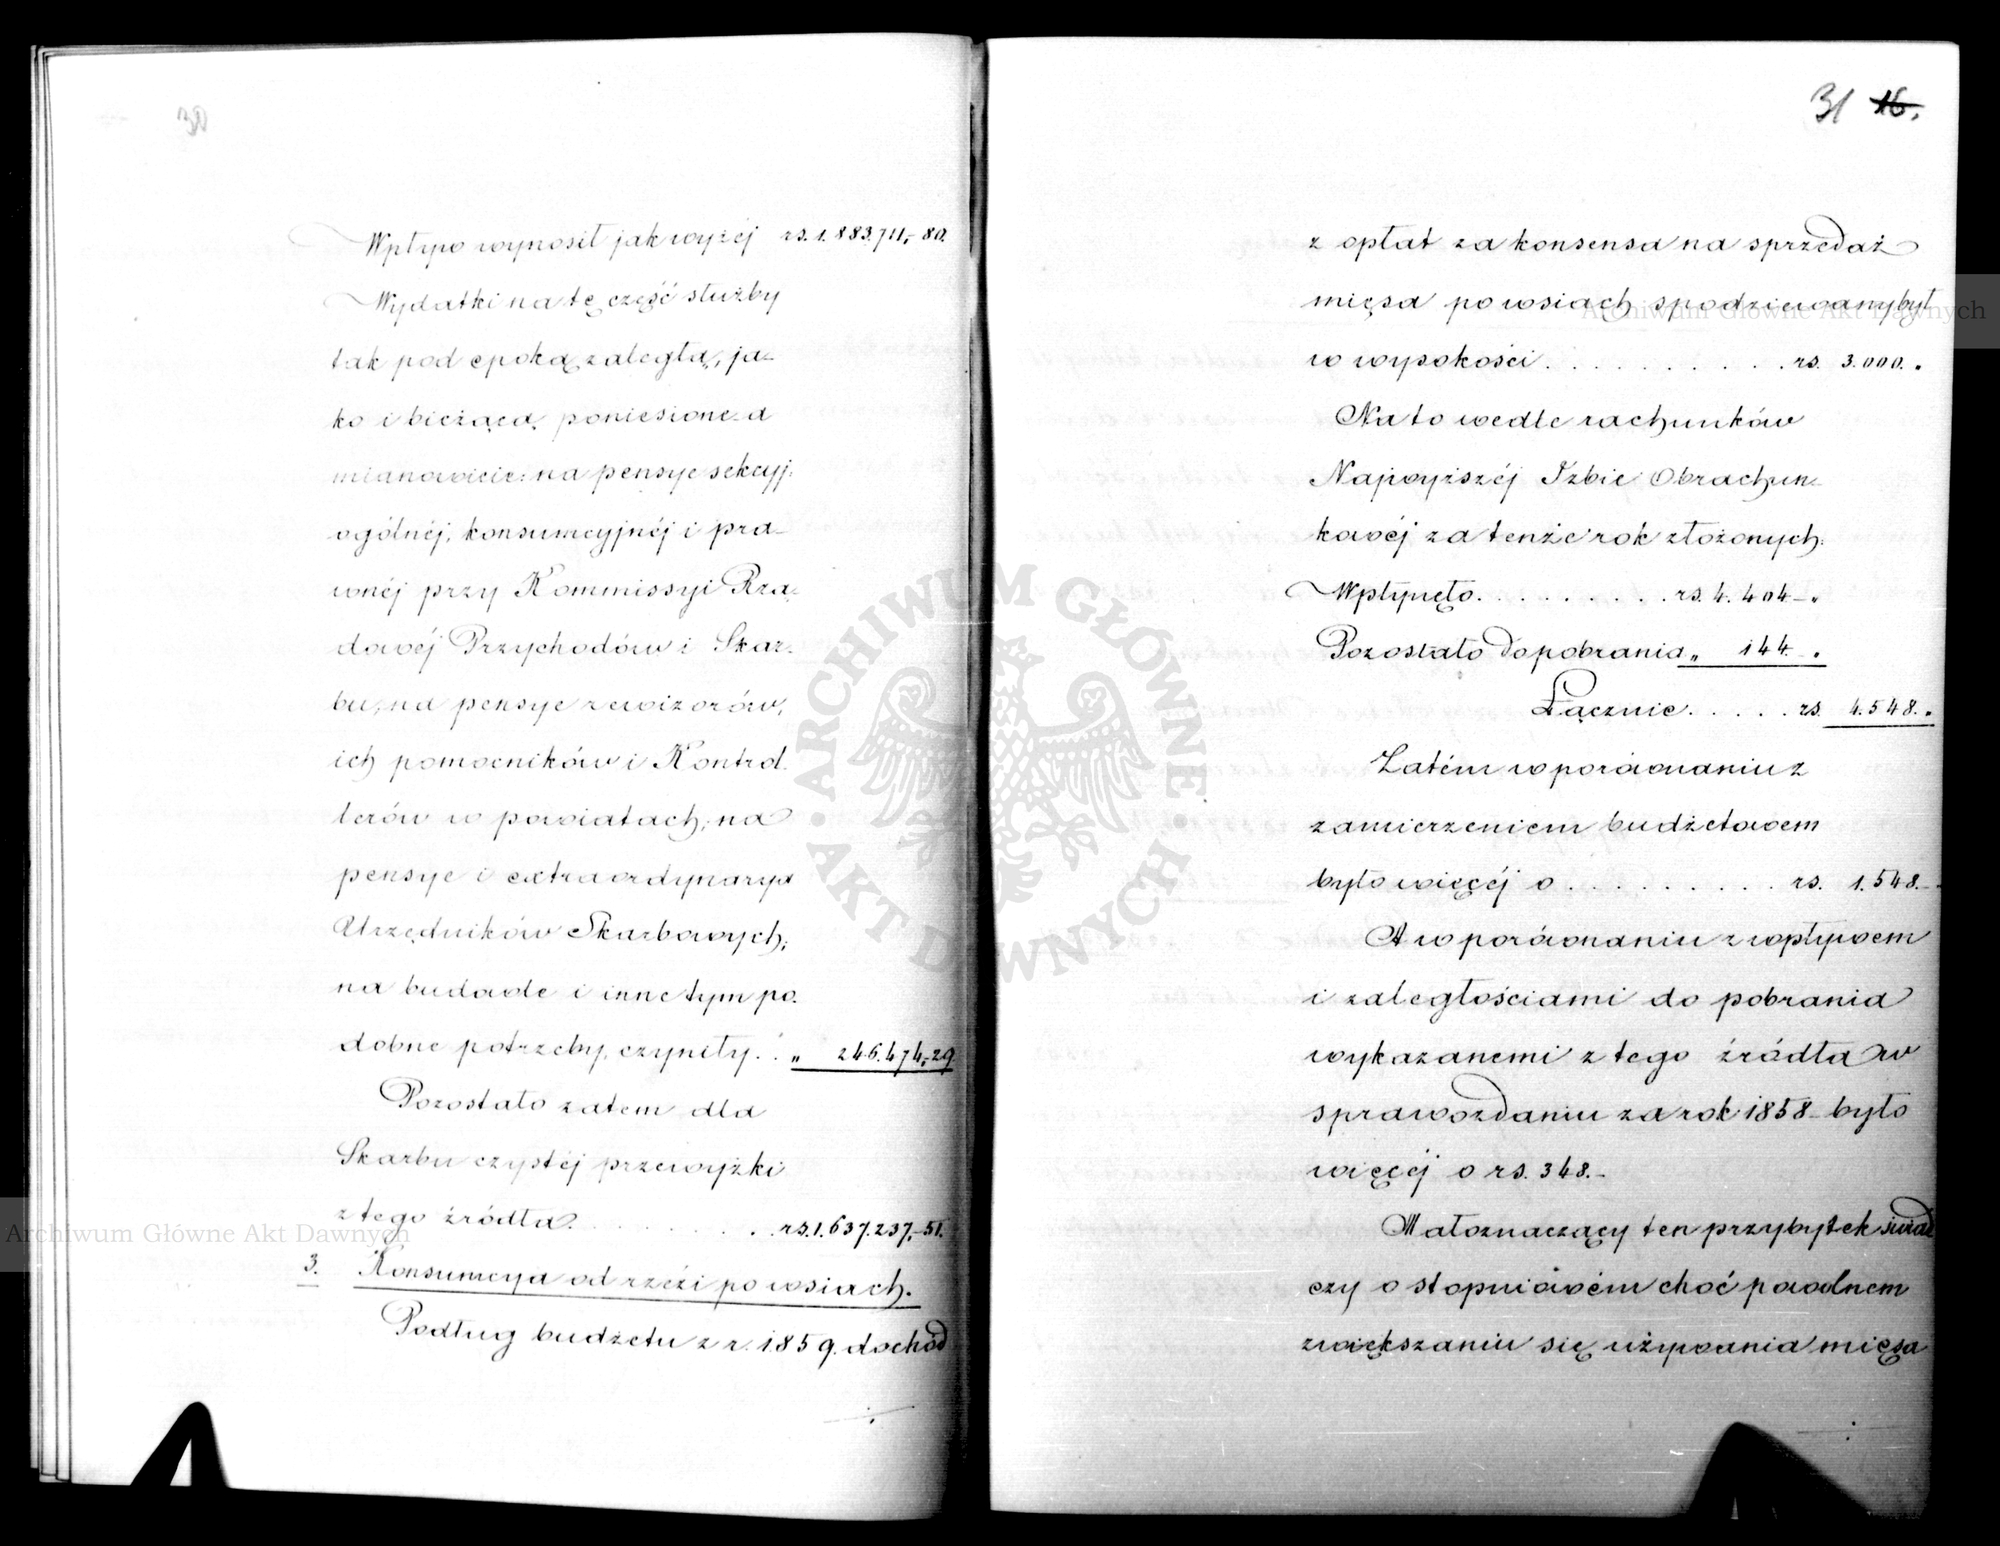 30
Wpływ wynosił jak wyżej rs. 1.883.711,-80.
Wydatki na tę część służby
tak pod epoką zaległą, ja-
ko i bieżącą, poniesione a
mianowicie: na pensye sekcyj:
ogólnéj, konsumcyjnéj i pra-
wnéj przy Kommissyi Rzą-
dowéj Przychodów i Skar-
bu, na pensye rewizorów,
ich pomocników i Kontrol-
lerów w powiatach; na
pensye i extraordynarya
Urzędników Skarbowych;
na budowle i inne tym po-
dobne potrzeby, czyniły . . „ 246.474,-29
Pozostało zatem dla
Skarbu czystéj przewyżki
z tego źródła . . . . . rs. 1.637.237,-51.
3. Konsumcya od rzezi po wsiach.
Podług budżetu z r. 1859. dochód
31 16.
z opłat za konsensa na sprzedaż
mięsa po wsiach spodziewany był
w wysokości . . . . . . . . . . rs. 3.000. „
Na to wedle rachunków
Najwyższéj Izbie Obrachun-
kowéj za tenże rok złożonych:
Wpłynęło . . . . . . . . . rs. 4.404 - „
Pozostało do pobrania „ 144. - „
Łącznie . . . . . rs. 4.548. „
Zatém w porównaniu z
zamierzeniem budżetowem
było więcéj o . . . . . . . . . rs. 1.548. -
A w porównaniu z wpływem
i zaległościami do pobrania
wykazanemi z tego źródła w
sprawozdaniu za rok 1858 - było
więcéj o rs. 348. -
Małoznaczący ten przybytek świad
czy o stopniowém choć powolnem
zwiększaniu się używania mięsa
Archiwum Główne Akt Dawnych
Archiwum Główne Akt Dawnych
ARCHIWUM GŁÓWNE AKT DAWNYCH